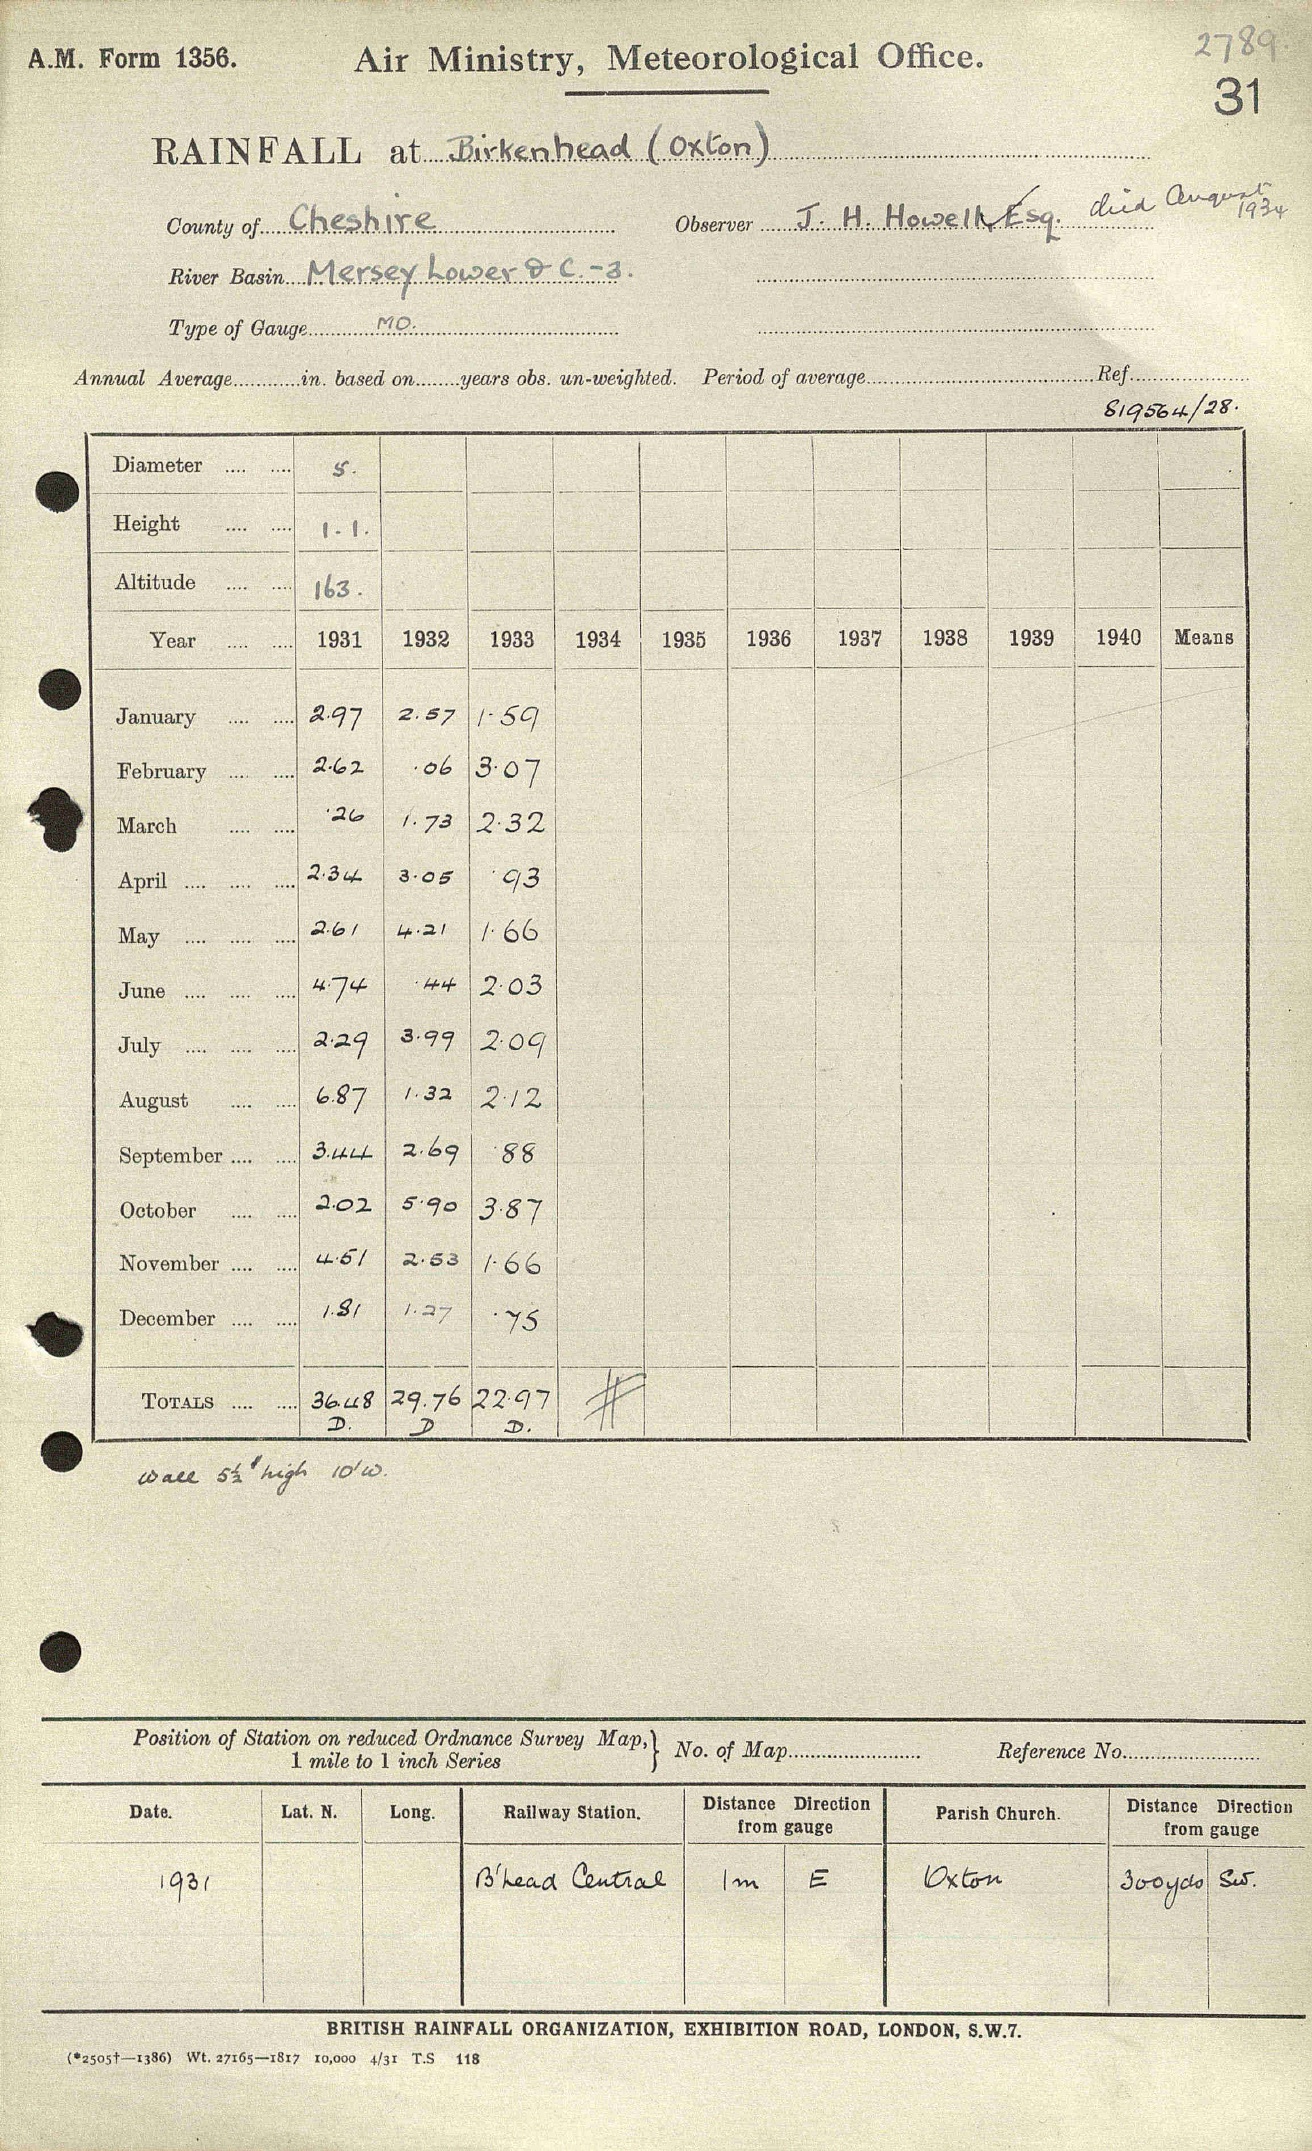 2789.
A.M. Form 1356.
Air Ministry, Meteorological Office.
31
RAINFALL at Birkenhead (Oxton)
County of Cheshire
Observer J. H. Howell, Esq. died August 1934
River Basin Mersey Lower & C.-3.
Type of Gauge MO.
Annual Average............in. based on........years obs. un-weighted. Period of average............Ref............
819564/28.
Diameter .... .... 5.
Height .... .... 1.1.
Altitude .... .... 163.
Year .... .... 1931 1932 1933 1934 1935 1936 1937 1938 1939 1940 Means
January .... .... 2.97 2.57 1.59
February .... .... 2.62 .06 3.07
March .... .... .26 1.73 2.32
April .... .... .... 2.34 3.05 .93
May .... .... .... 2.61 4.21 1.66
June .... .... .... 4.74 .44 2.03
July .... .... .... 2.29 3.99 2.09
August .... .... 6.87 1.32 2.12
September .... .... 3.44 2.69 .88
October .... .... 2.02 5.90 3.87
November .... .... 4.51 2.53 1.66
December .... .... 1.81 1.27 .75
TOTALS .... .... 36.48 29.76 22.97
D. D D.
Wall 5½' high 10' W.
Position of Station on reduced Ordnance Survey Map,} No. of Map............ Reference No............
1 mile to 1 inch Series
Date. Lat. N. Long. Railway Station. Distance Direction from gauge Parish Church. Distance Direction from gauge
1931 B'head Central 1m E Oxton 300yds SW.
BRITISH RAINFALL ORGANIZATION, EXHIBITION ROAD, LONDON, S.W.7.
(*2505†—1386) Wt. 27165—1817 10,000 4/31 T.S 118